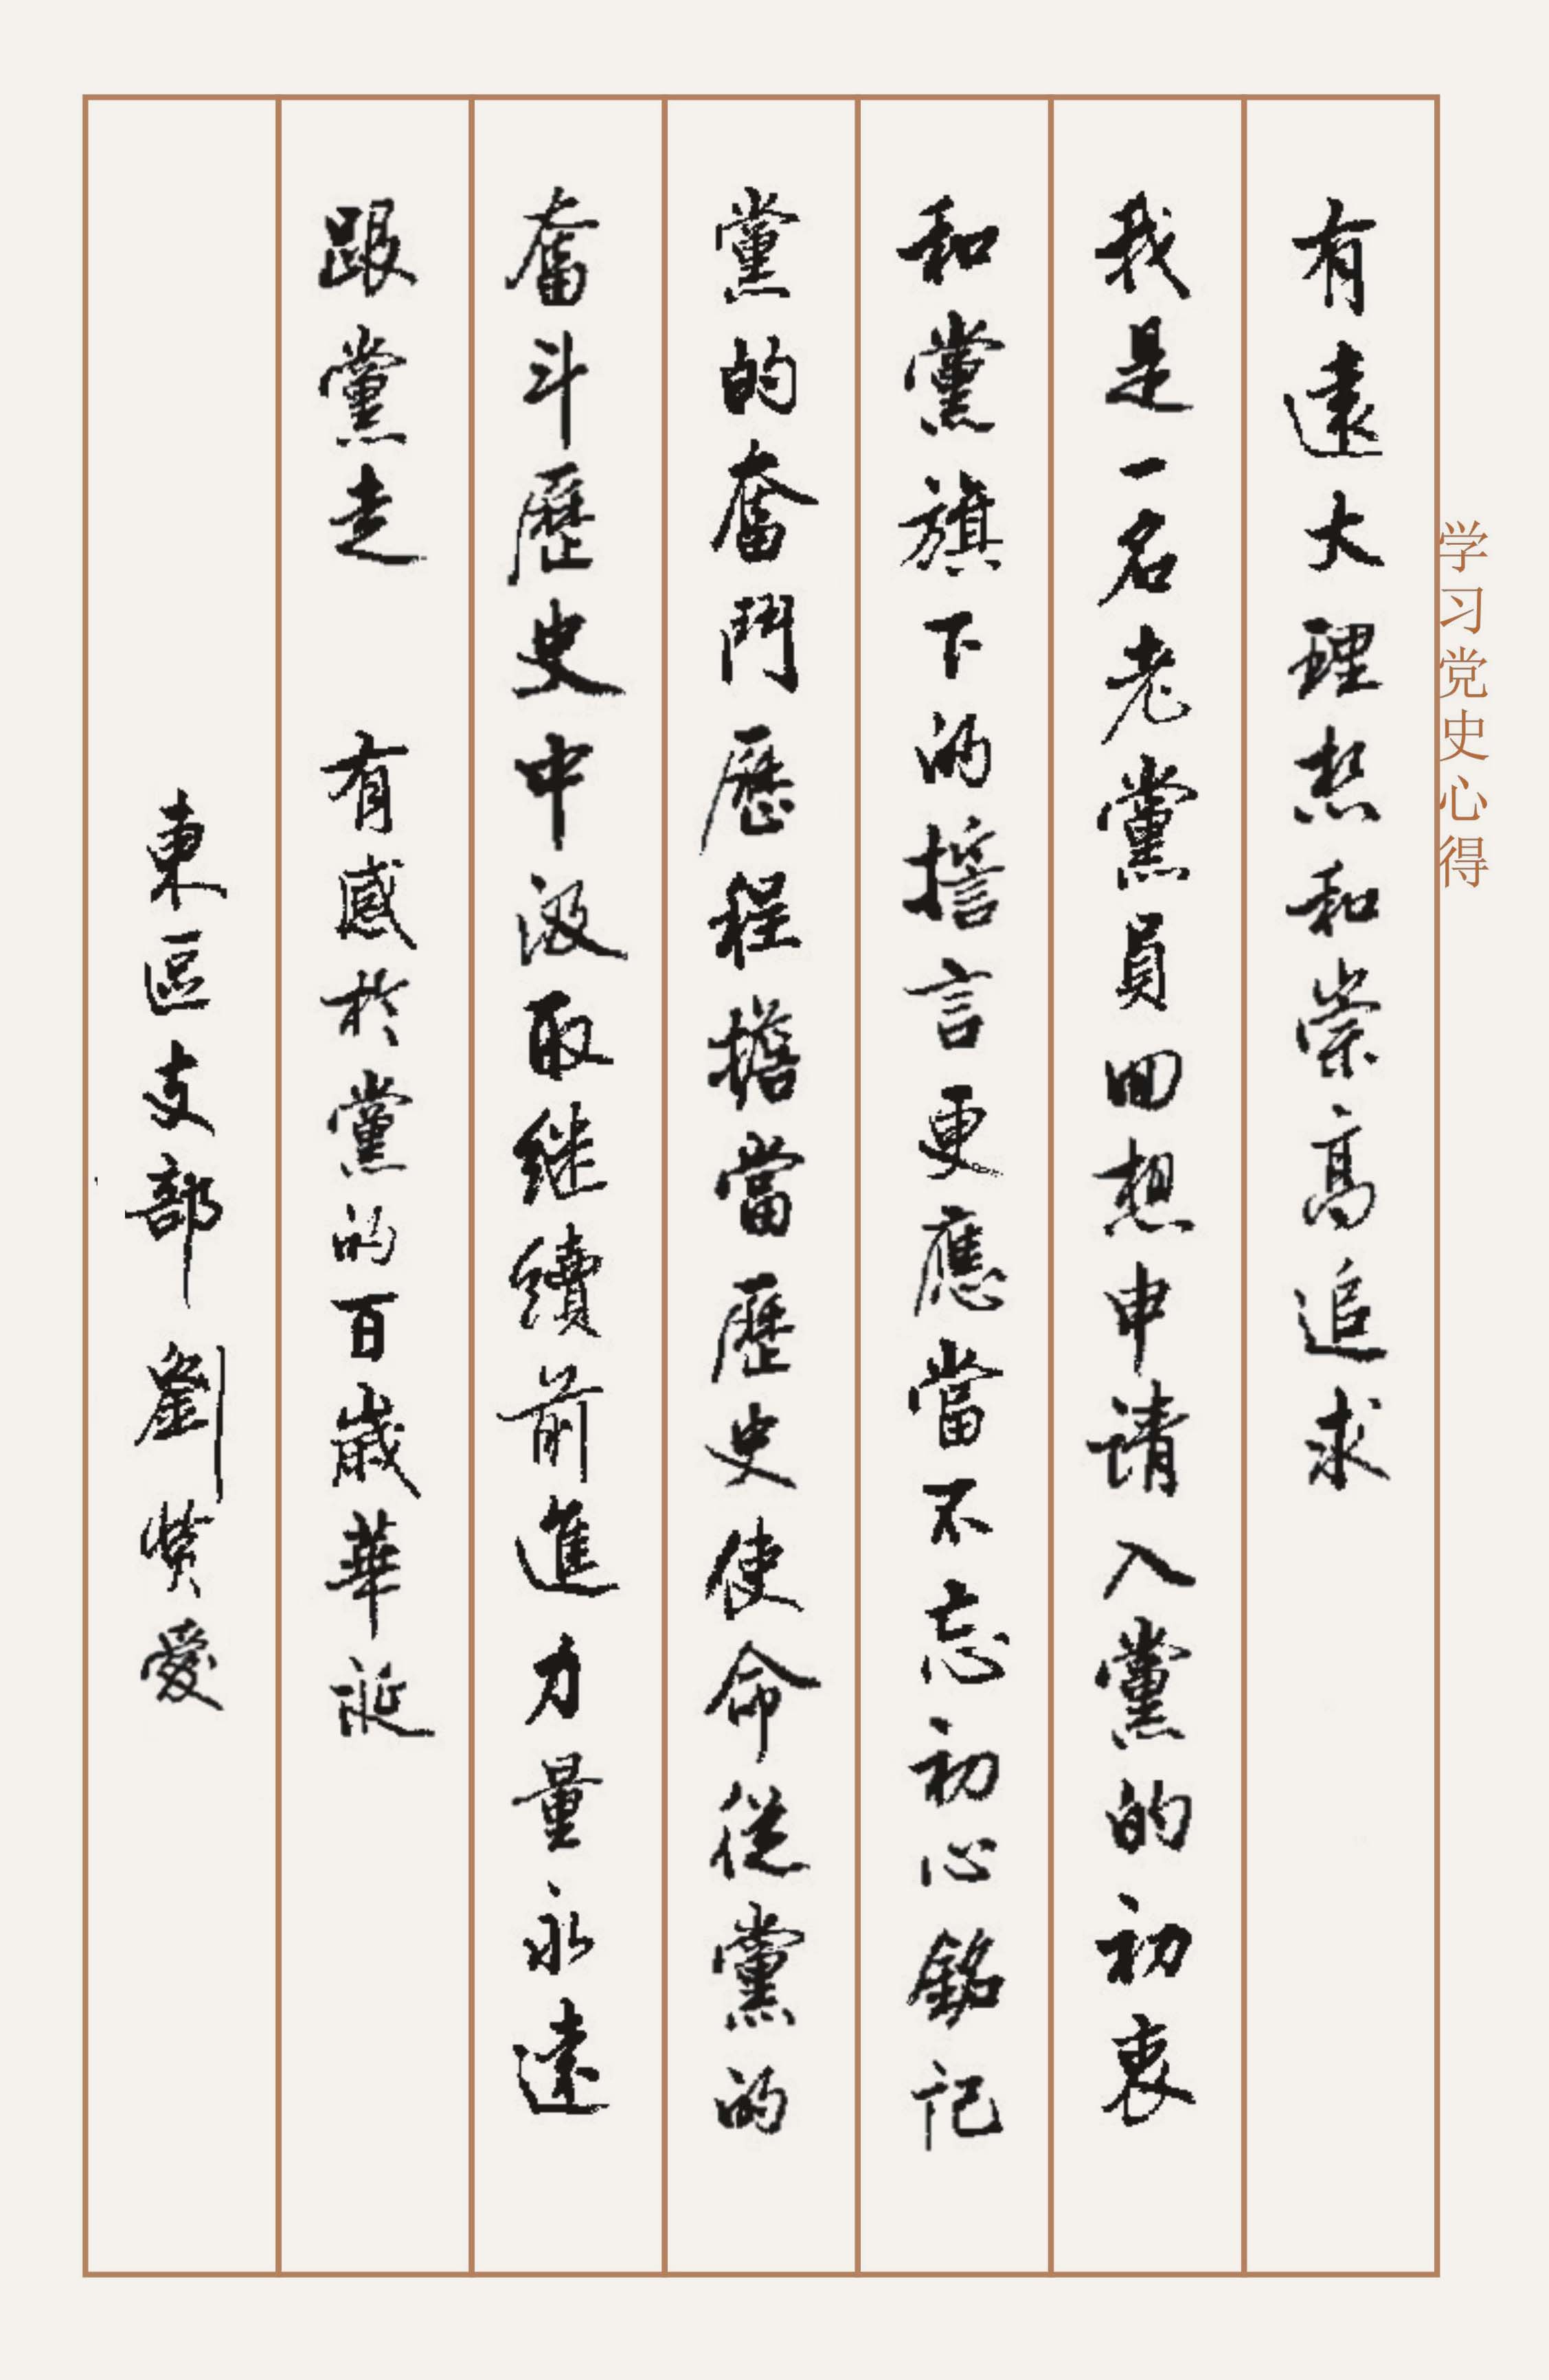 学习党史心得
有遠大理想和崇高追求
我是一名老黨員回想申请入黨的初衷
和黨旗下的誓言更應當不忘初心銘記
黨的奮鬥歷程擔當歷史使命從黨的
奮斗歷史中汲取继續前進力量永遠
跟黨走 有感於黨的百歲華诞
東區支部劉愛